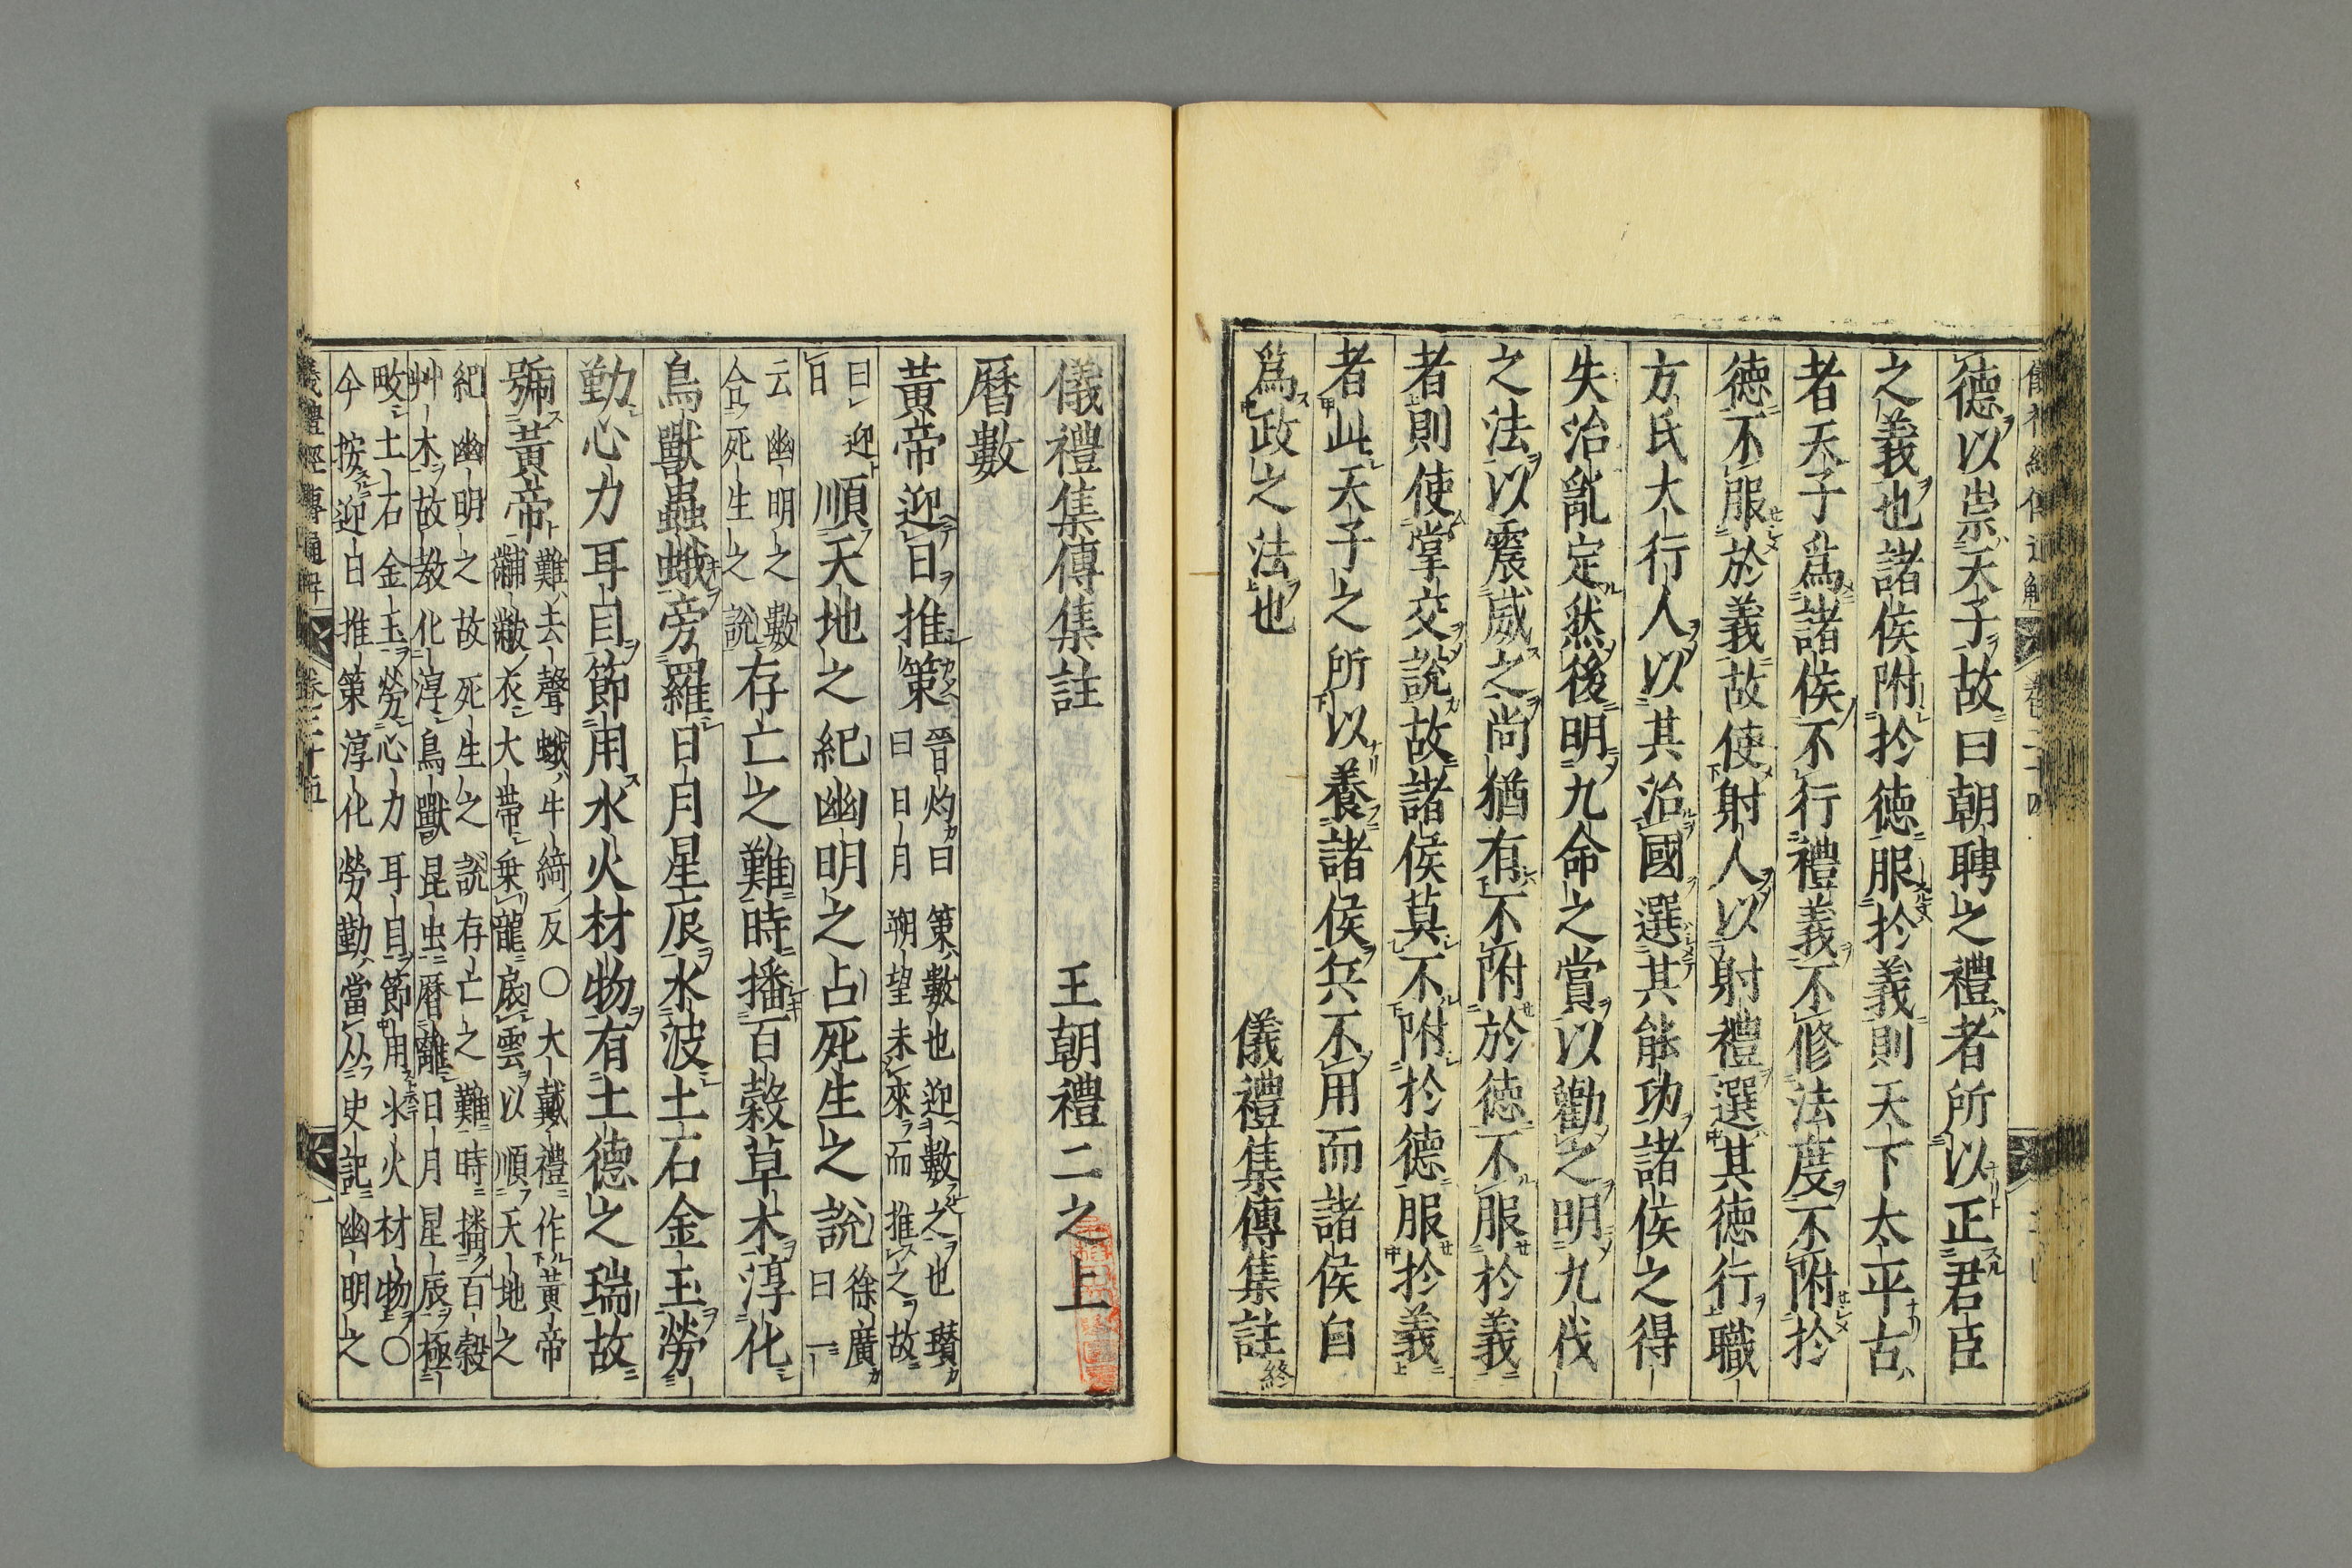 德以崇天子故曰朝聘之禮者所以正君臣
之義也諸侯附於徳服於義則天下太平古
者天子為諸侯不行禮義不修法度不附於
徳不服於義故使射人以射禮選其徳行職
方氏大行人以其治國選其能功諸侯之得
失治亂定然後明九命之賞以勸之明九伐
之法以震威之尚猶有不附於徳不服於義
者則使掌交說故諸侯莫不附於德服於義
者此天子之所以養諸侯兵不用而諸侯自
爲政之法也
儀禮集傳集註終
儀禮集傳集註 王朝禮二之上
曆數
黃帝迎日推策
晉灼曰策數也迎數之也瓚
曰日月朔望未來而推之故
曰迎
日
順天地之紀幽明之占死生之說
徐廣
曰一
云幽明之數
合死生之說
存亡之難時播百穀草木淳化
鳥獸蟲蛾旁羅日月星辰水波土石金玉勞
勤心力耳目節用水火材物有土德之瑞故
號黃帝
難去聲蛾牛綺反〇大戴禮作黃帝
黼黻衣大帶乗龍扆雲以順天地之
紀幽明之故死生之說存亡之難時播百穀
艸木故教化淳鳥獸昆虫曆離日月星辰極
畋土石金玉勞心力耳目節用水火材物〇
今按迎日推策淳化勞勤當从史記幽明之
儀禮經傳通解 卷二十五 一